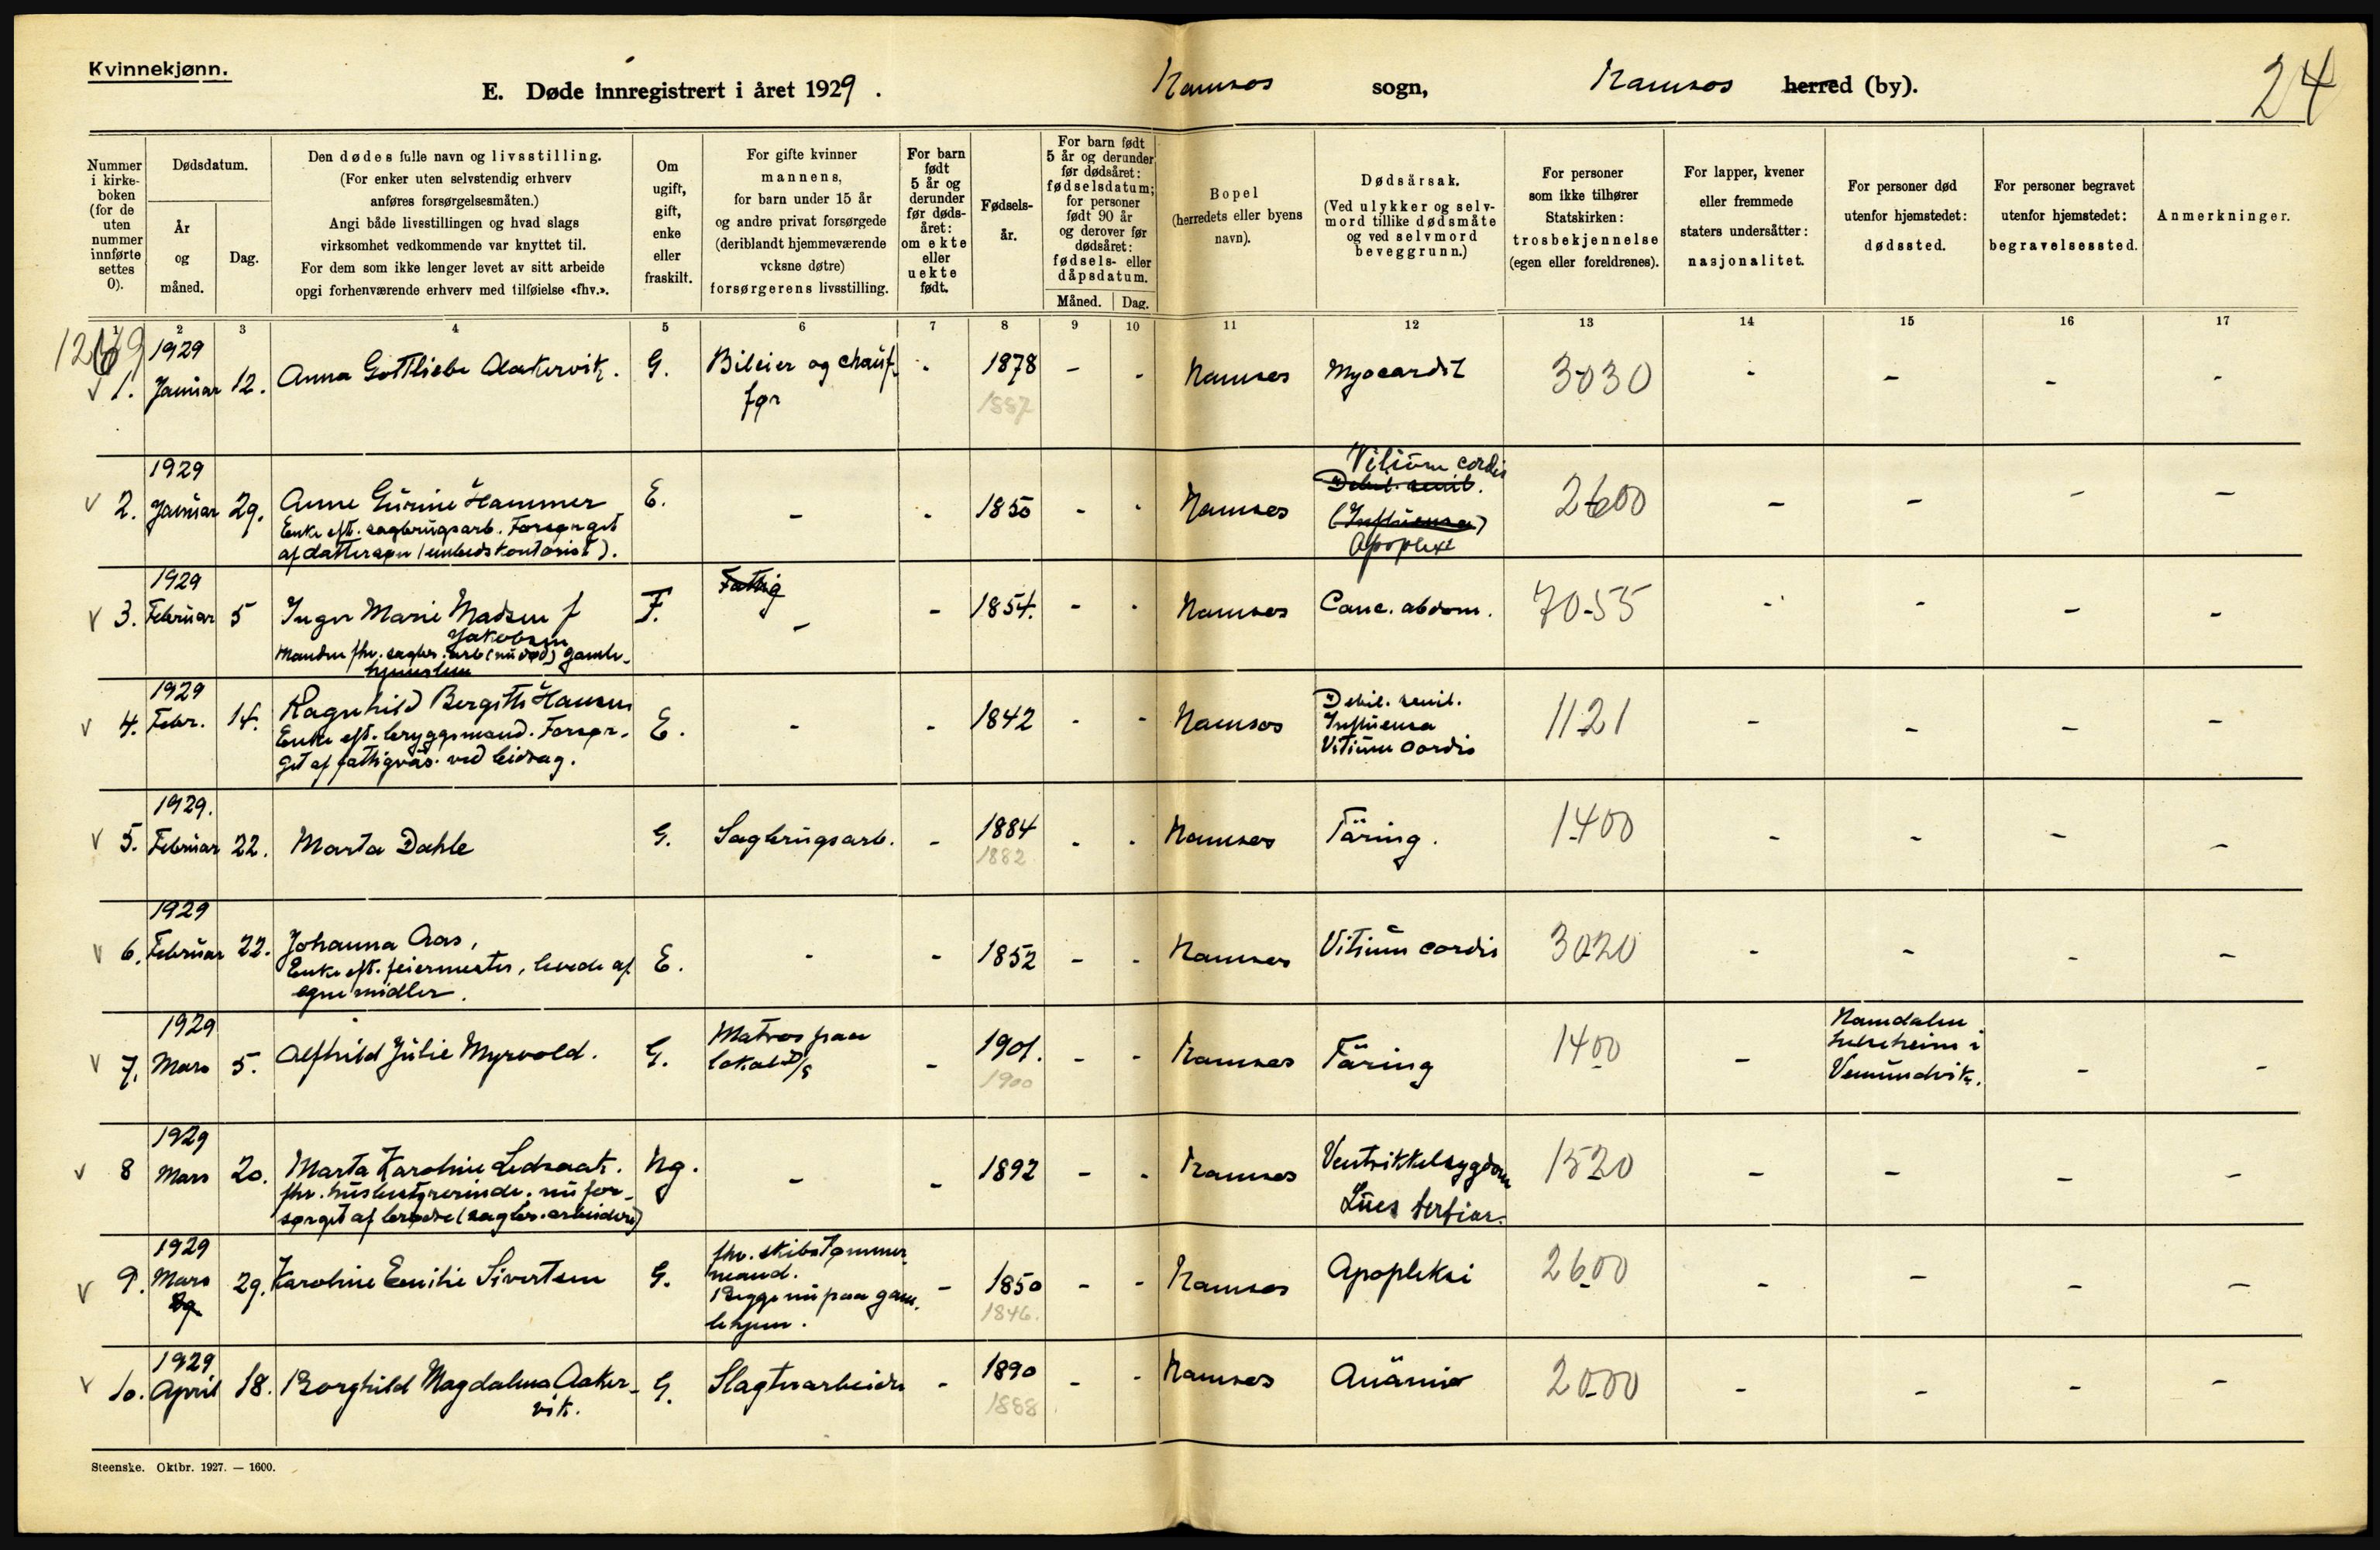 Kvinnekjønn.
E. Døde innregistrert i året 1929.
Namsos sogn,
Namsos herred (by).
24
Nummer i kirkeboken (for de uten nummer innførte settes 0).
Dødsdatum.
År og måned.
Dag.
Den dødes fulle navn og livsstilling.
(For enker uten selvstendig erhverv
anføres forsørgelsesmåten.)
Angi både livsstillingen og hvad slags
virksomhet vedkommende var knyttet til.
For dem som ikke lenger levet av sitt arbeide
opgi forhenværende erhverv med tilføielse «fhv.».
Om ugift, gift, enke eller fraskilt.
For gifte kvinner
mannens,
for barn under 15 år
og andre privat forsørgede
(deriblandt hjemmeværende
voksne døtre)
forsørgerens livsstilling.
For barn født 5 år og derunder før dødsåret: om ekte eller uekte født.
Fødselsår.
For barn født
5 år og derunder
før dødsåret:
fødselsdatum;
for personer
født 90 år
og derover før
dødsåret:
fødsels- eller
dåpsdatum.
Måned. Dag.
Bopel
(herredets eller byens
navn).
Dødsårsak.
(Ved ulykker og selv-
mord tillike dødsmåte
og ved selvmord
beveggrunn.)
For personer
som ikke tilhører
Statskirken:
trosbekjennelse
(egen eller foreldrenes).
For lapper, kvener
eller fremmede
staters undersåtter:
nasjonalitet.
For personer død
utenfor hjemstedet:
dødssted.
For personer begravet
utenfor hjemstedet:
begravelsessted.
Anmerkninger.
1 2 3 4 5 6 7 8 9 10 11 12 13 14 15 16 17
√ 1. 1929 Januar 12. Anna Gottliebe Aakervik. G. Bileier og chauf-
før - 1878 - - Namsos Myocardit 3030 - - - -
1887
√ 2. 1929 Januar 29. Anne Gurine Hammer E. - - 1850 - - Namsos Vitium cordis 2600 - - - -
Enke eft. sagbrugsarb. Forsørget
af dattersøn (embedskontorist).
Debil. senil.
(Influensa)
Apoplexi
√ 3. 1929 Februar 5 Inger Marie Madsen f F. Fattig - - 1854. - - Namsos Canc. abdom. 70-55 - - - -
Jakobsen
Manden fhv. sagbr. arb (nu død) Gamle-
hjemslem
√ 4. 1929 Febr. 14. Ragnhild Bergitte Hansen E. - - 1842 - - Namsos Debil. senil. 1121 - - - -
Enke eft. bryggemand. Forsør-
get af fattigvæs. ved bidrag.
Influensa
Vitium cordis
√ 5. 1929. Februar 22. Marta Dahle G. Sagbrugsarb. - 1884 - - Namsos Täring. 1400 - - - -
1882
√ 6. 1929 Februar 22. Johanna Aas, E. - - 1852 - - Namsos Vitium cordis 3020 - - - -
Enke eft. feiermester, levede af
egne midler.
√ 7. 1929 Mars 5. Alfhild Julie Myrvold. G. Matros paa
lokal D/S - 1901. - - Namsos Täring 1400 - Namdalen
helseheim i
Vemundvik. - -
1900
√ 8 1929 Mars 20. Marta Karoline Ledsaak. Ug. - - 1892 - - Namsos Ventrikkelsygdom 1520 - - - -
fhv. husbestyrerinde. nu for-
sørget af brødre (sagbr. arbeidere)
Lues tertiar.
√ 9. 1929 Mars 29. Karoline Emilie Sivertsen G. fhv. skibstømmer
mand.
Begge nu paa gam-
lehjem. - 1850 - - Namsos Apopleksi 2600 - - - -
1846.
√ 10. 1929 April 18. Borghild Magdalena Aaker-
vik. G. Slagterarbeider - 1890 - - Namsos Anämie 2000 - - - -
1888
Steenske. Oktbr. 1927. — 1600.